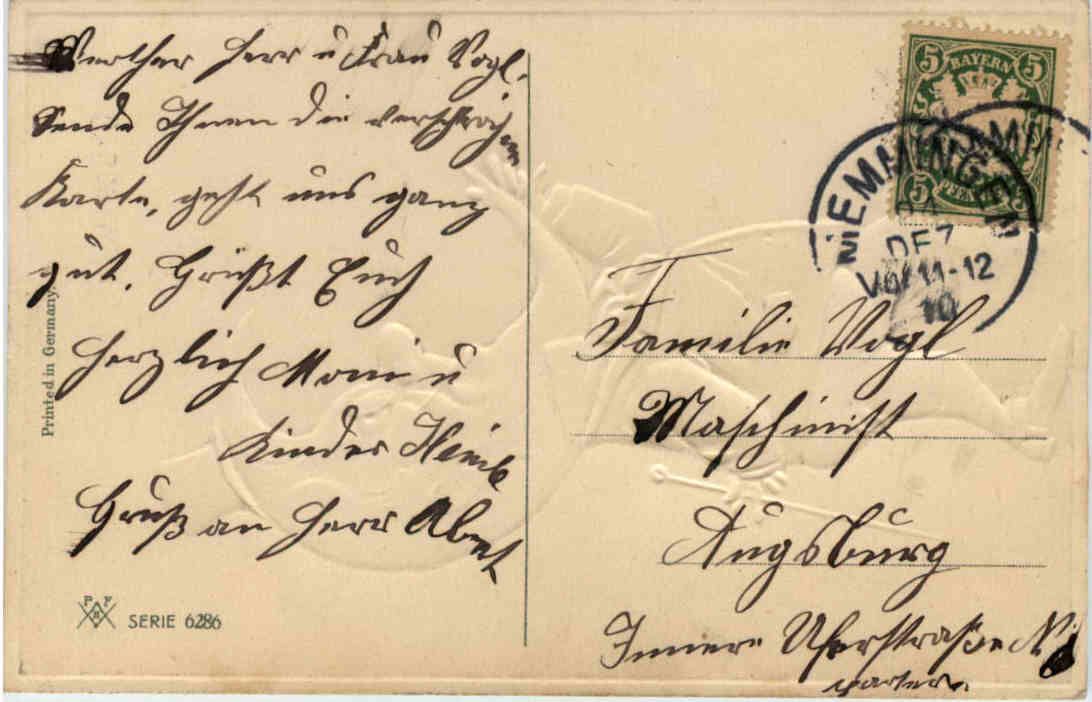 Werther Herr u Frau Vogl.
Sende Ihnen die versprochene
Karte, geht uns ganz
gut. Grüßt Euch
herzlich Moni u
Kinder
Gruß an Herr Abt
Printed in Germany
PFB
SERIE 6286
BAYERN
5 5
5 5
PFENNIG
MEMMINGEN
DEZ
VM 11-12
10
Familie Vogl
Maschinist
Augsburg
Innere Uferstraße N
parterre